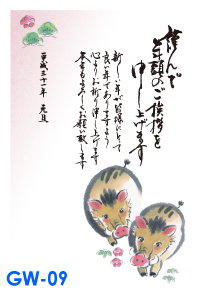 謹んで
年頭のご挨拶を
申し上げます
新しい年が皆様にとって
良い年でありますよう
心よりお祈り申し上げます
本年もよろしくお願い致します
平成三十一年 元旦
GW-09